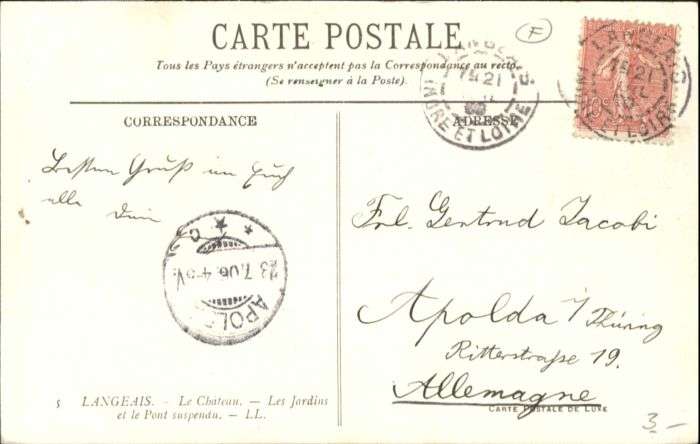 CARTE POSTALE
F
Tous les Pays étrangers n'acceptent pas la Correspondance au recto.
(Se renseigner à la Poste).
LANGEAIS
7E 21
INDRE ET LOIRE
LANGEAIS
7E 21
INDRE ET LOIRE
10
CORRESPONDANCE
ADRESSE
Besten Gruß an Euch
alle Dein
APOLDA
23.7.06.4-5V.
Frl. Gertrud Jacobi
Apolda i/Thüring
Ritterstraße 19.
Allemagne
5 LANGEAIS. - Le Château. — Les Jardins
et le Pont suspendu. — LL.
CARTE POSTALE DE LUXE
3.-